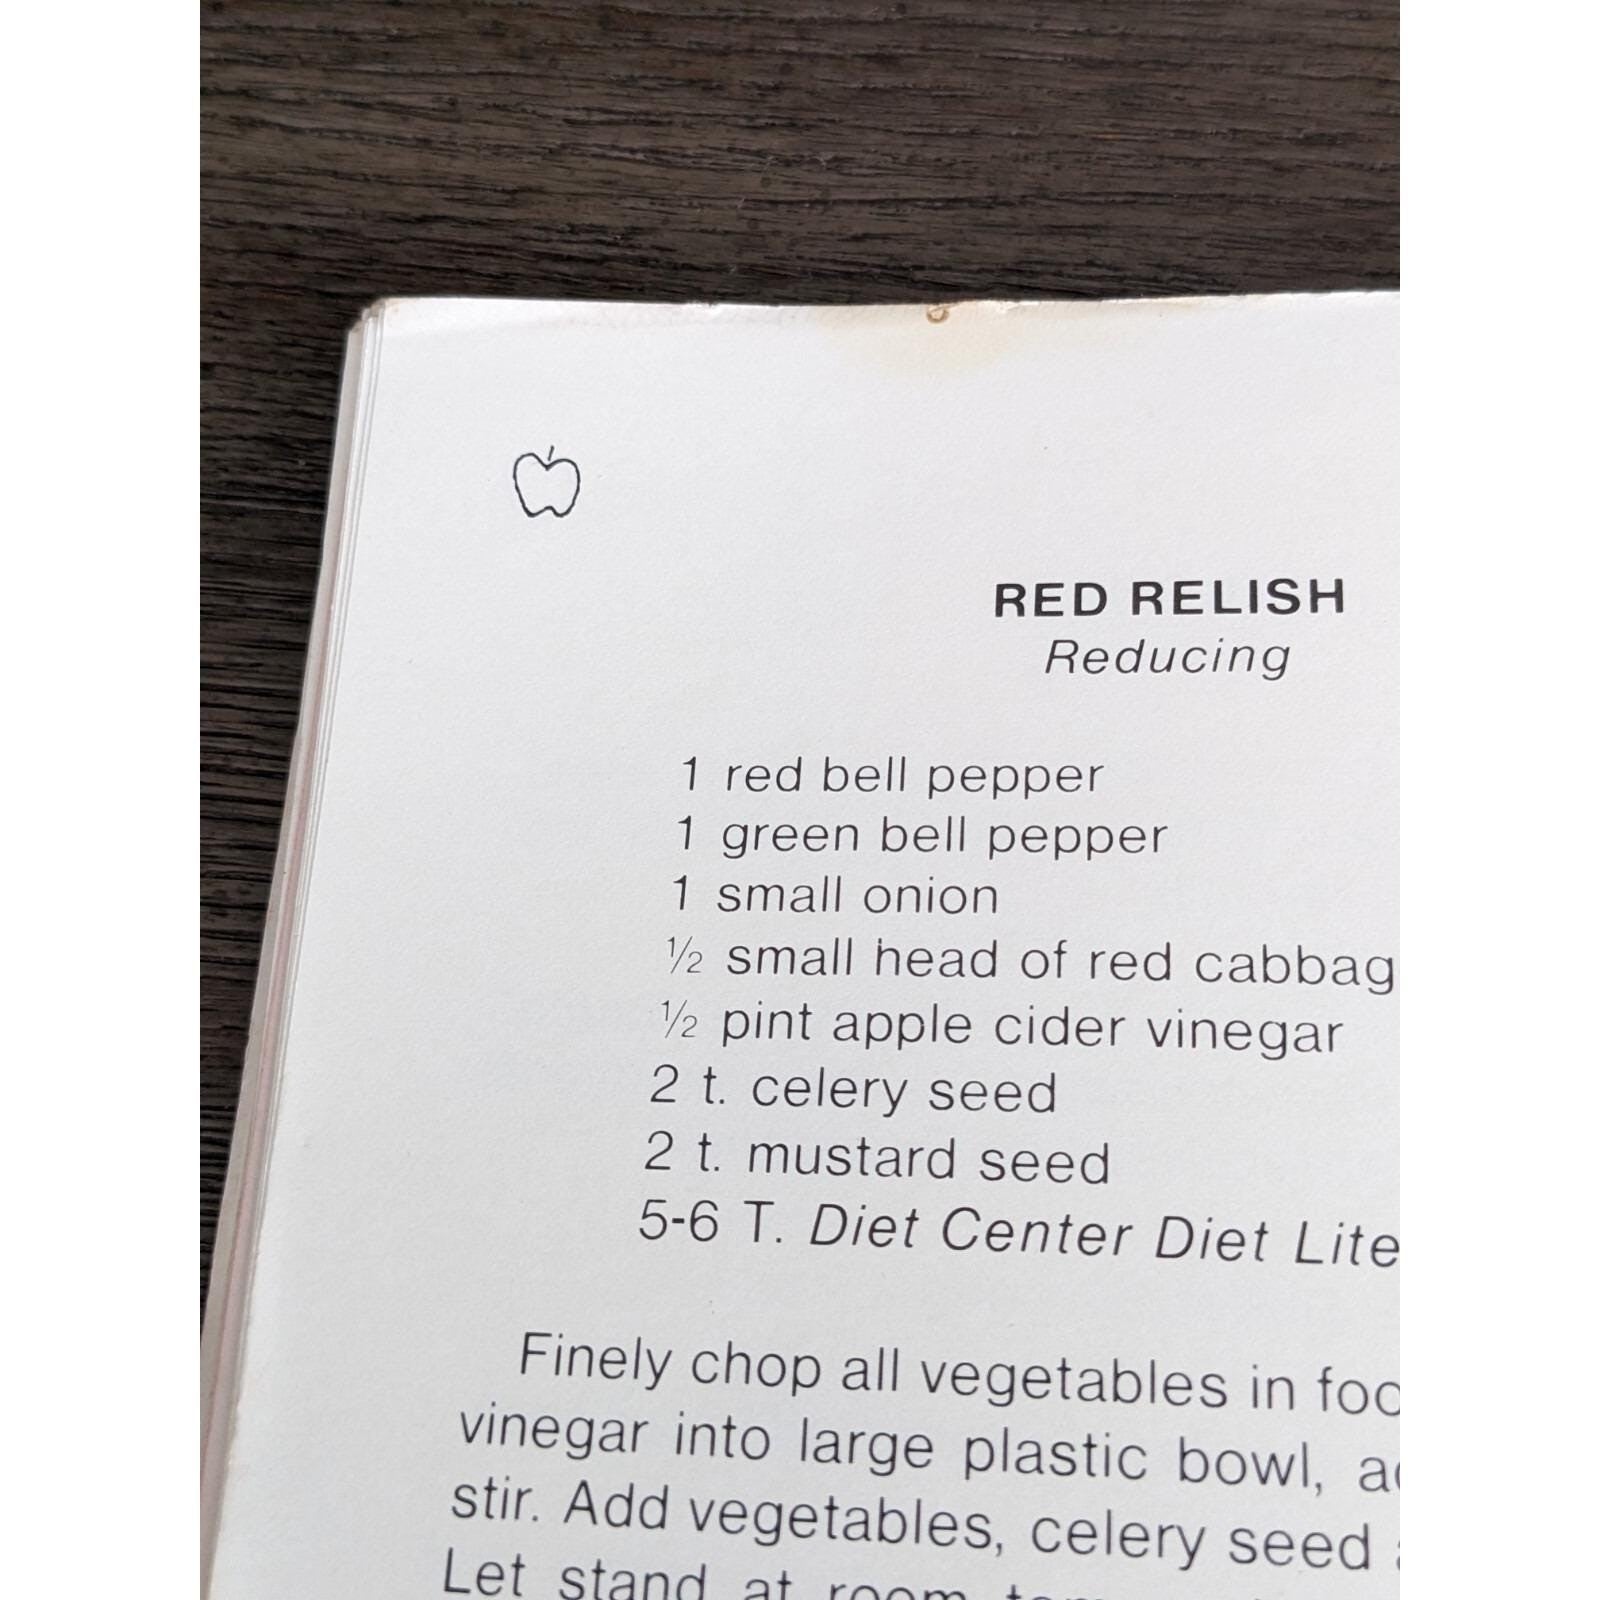 RED RELISH
Reducing
1 red bell pepper
1 green bell pepper
1 small onion
½ small head of red cabbag
½ pint apple cider vinegar
2 t. celery seed
2 t. mustard seed
5-6 T. Diet Center Diet Lite
Finely chop all vegetables in foo
vinegar into large plastic bowl,
stir. Add vegetables, celery seed
Let stand at room